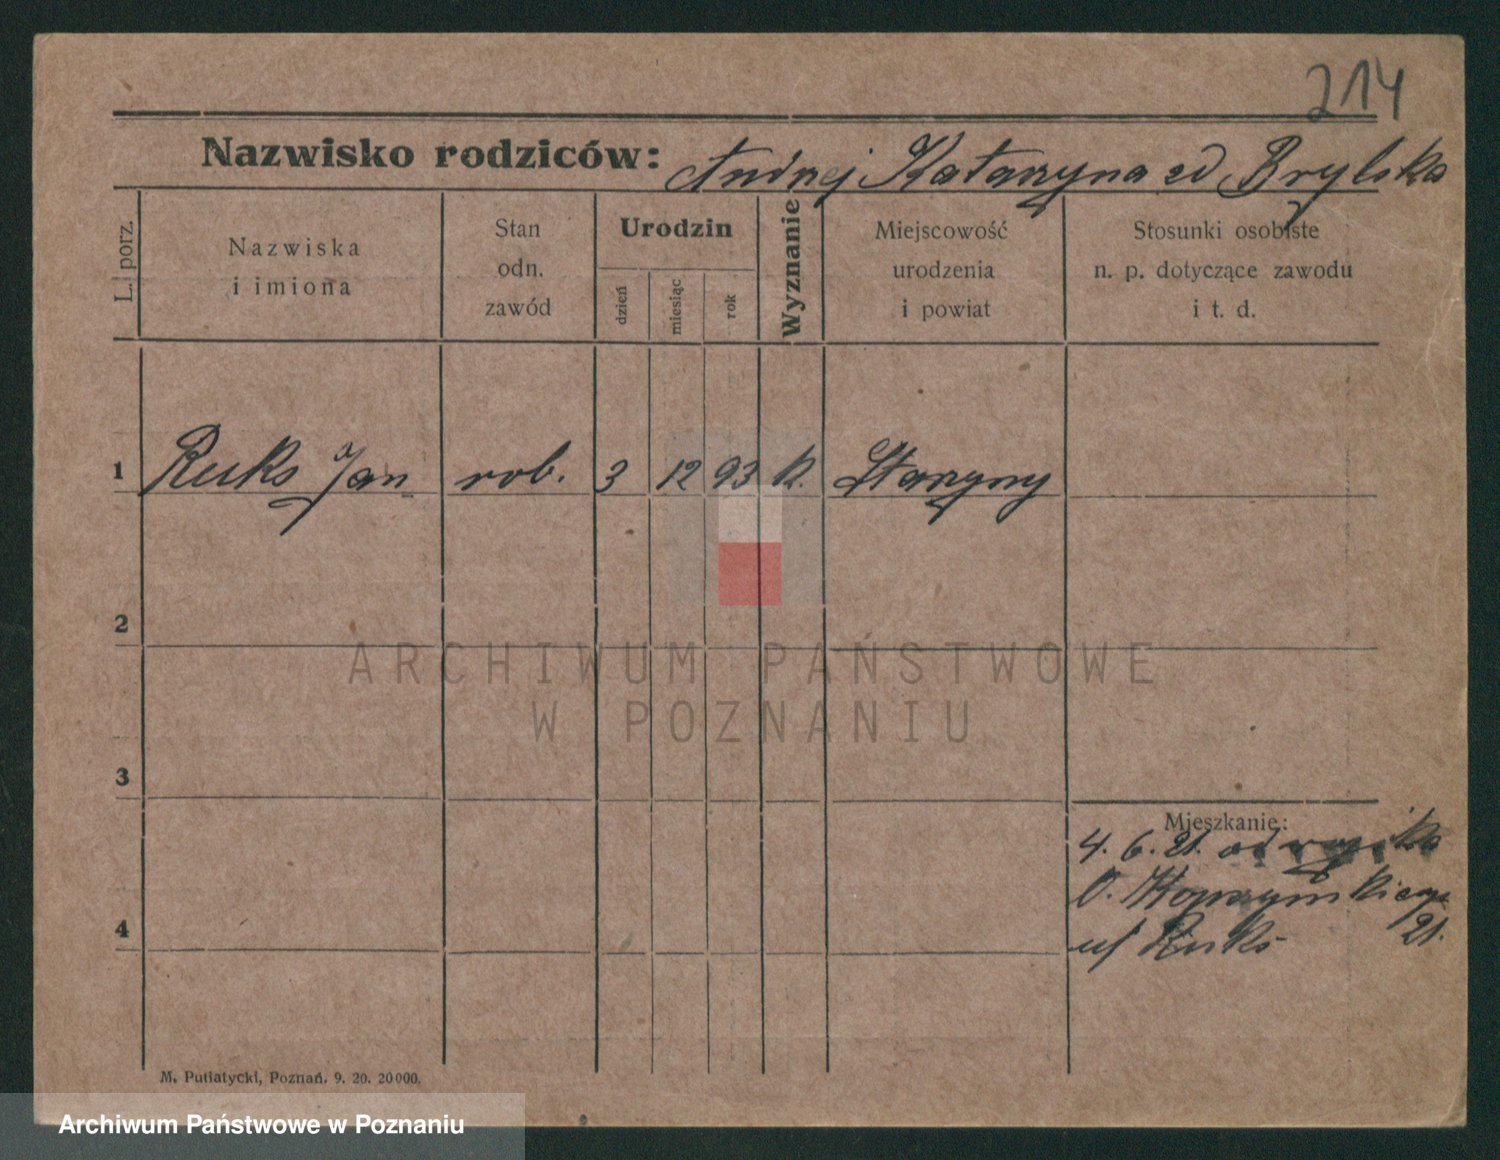 214
Nazwisko rodziców: Andrzej Katarzyna zd Brylska
L. porz.
Nazwiska
i imiona
Stan
odn.
zawód
Urodzin
dzień
miesiąc
rok
Wyznanie
Miejscowość
urodzenia
i powiat
Stosunki osobiste
n. p. dotyczące zawodu
i t. d.
1 Ruks Jan rob. 3 12 93 k. Starzyny
2
ARCHIWUM PAŃSTWOWE
W POZNANIU
3
Mieszkanie:
4. 6. 21.
21.
u/ Ruks
4
M. Putiatycki, Poznań. 9. 20. 20000.
Archiwum Państwowe w Poznaniu